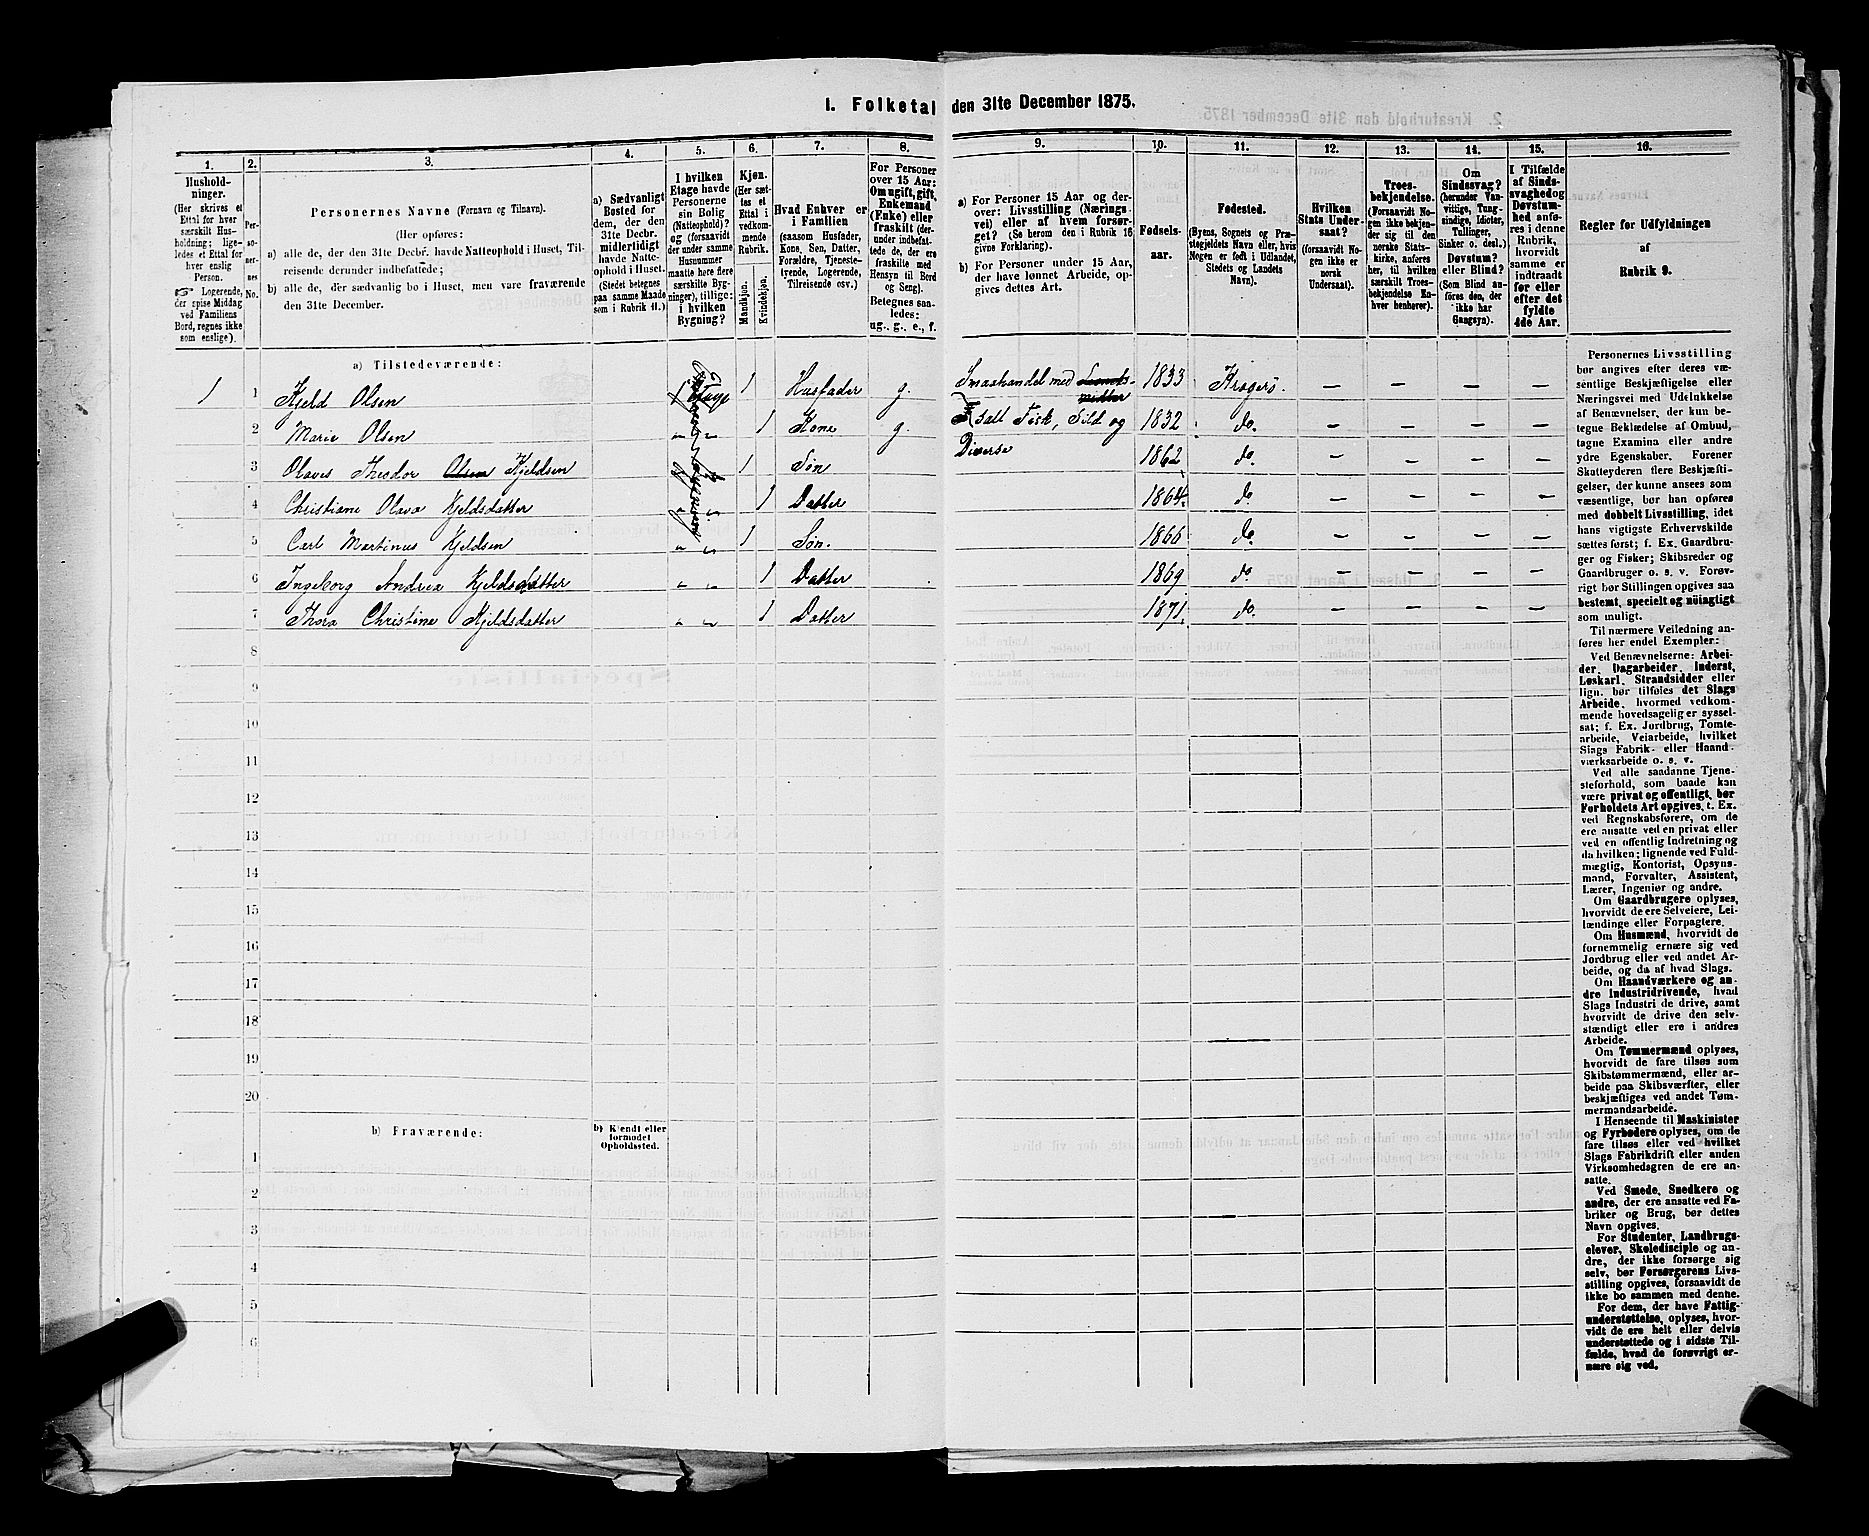 1. Folketal den 31te December 1875.
1.
Hushold-
ninger.
(Her skrives et
Ettal for hver
særskilt Hus-
holdning; lige-
ledes et Ettal for
hver enslig
Person.
☞ Logerende,
der spise Middag
ved Familiens
Bord, regnes ikke
som enslige).
2.
Per-
so-
ner-
nes
No.
3.
Personernes Navne (Fornavn og Tilnavn).
(Her opføres:
a) alle de, der den 31te Decbr. havde Natteophold i Huset, Til-
reisende derunder indbefattede;
b) alle de, der sædvanlig bo i Huset, men vare fraværende
den 31te December.
4.
a) Sædvanligt
Bosted for
dem, der den
31te Decbr.
midlertidigt
havde Natte-
ophold i Huset.
(Stedet betegnes
paa samme Maade
som i Rubrik 11.)
5.
I hvilken
Etage havde
Personerne
sin Bolig
(Natteophold)?
og (forsaavidt
der under samme
Husnummer
maatte høre flere
særskilte Byg-
ninger), tillige:
i hvilken
Bygning?
6.
Kjøn.
(Her sæt-
tes et
Ettal i
vedkom-
mende
Rubrik.
Mandkjøn.
Kvindekjøn.
7.
Hvad Enhver er
i Familien
(saasom Husfader,
Kone, Søn, Datter,
Forældre, Tjeneste-
tyende, Logerende,
Tilreisende osv.)
8.
For Personer
over 15 Aar:
Om ugift, gift,
Enkemand
(Enke) eller
fraskilt (der-
under indbefat-
tede de, der ere
fraskilte med
Hensyn til Bord
og Seng).
Betegnes saa-
ledes:
ug., g., e., f.
9.
a) For Personer 15 Aar og der-
over: Livsstilling (Nærings-
vei) eller af hvem forsør-
get? (Se herom den i Rubrik 16
givne Forklaring).
b) For Personer under 15 Aar,
der have lønnet Arbeide, op-
gives dettes Art.
10.
Fødsels-
aar.
11.
Fødested.
(Byens, Sognets og Præ-
stegjeldets Navn eller, hvis
Nogen er født i Udlandet,
Stedets og Landets
Navn).
12.
Hvilken
Stats Under-
saat?
(forsaavidt No-
gen ikke er
norsk
Undersaat).
13.
Troes-
bekjendelse.
(Forsaavidt No-
gen ikke bekjen-
der sig til den
norske Stats-
kirke, anføres
her, til hvilken
særskilt Troes-
bekjendelse En-
hver henhører).
14.
Om
Sindssvag?
(herunder Van-
vittige, Tung-
sindige, Idioter,
Tullinger,
Sinker o. desl.)
Døvstum?
eller Blind?
(Som Blind an-
føres den, der
ikke har
Gangsyn).
15.
I Tilfælde
af Sinds-
svaghed og
Døvstum-
hed anfø-
res i denne
Rubrik,
hvorvidt
samme er
indtraadt
før eller
efter det
fyldte
4de Aar.
16.
Regler for Udfyldningen
af
Rubrik 9.
a) Tilstedeværende:
1 1 Kjeld Olsen 1 Etage 1 Husfader g. Smaahandel med 1833 Kragerø. — — — —
2 Marie Olsen " " 1 Kone g. salt Fisk, Sild og 1832 do. — — — —
3 Olaves Theodor Olsen Kjeldsen 1 Søn Diverse 1862 do. — — — —
4 Christiane Olava Kjeldsdatter " " 1 Datter 1864. do — — — —
5 Carl Martinus Kjeldsen " " 1 Søn. 1866 do. — — — —
6 Ingeborg Andrea Kjeldsdatter " " 1 Datter 1869 do. — — — —
7 Thora Christine Kjeldsdatter " " 1 Datter 1871. do. — — — —
8
9
10
11
12
13
14
15
16
17
18
19
20
b) Fraværende:
b) Kjendt eller
formodet
Opholdssted.
1
2
3
4
5
6
Personernes Livsstilling
bør angives efter deres væ-
sentlige Beskjæftigelse eller
Næringsvei med Udelukkelse
af Benævnelser, der kun be-
tegne Beklædelse af Ombud,
tagne Examina eller andre
ydre Egenskaber. Forener
Skatteyderen flere Beskjæfti-
gelser, der kunne ansees som
væsentlige, bør han opføres
med dobbelt Livsstilling, idet
hans vigtigste Erhvervskilde
sættes først; f. Ex. Gaardbru-
ger og Fisker; Skibsreder og
Gaardbruger o. s. v. Forøv-
rigt bør Stillingen opgives saa
bestemt, specielt og nøiagtigt
som muligt.
Til nærmere Veiledning an-
føres her endel Exempler:
Ved Benævnelserne: Arbei-
der, Dagarbeider, Inderst,
Løskarl, Strandsidder eller
lign. bør tilføies det Slags
Arbeide, hvormed vedkom-
mende hovedsagelig er syssel-
sat; f. Ex. Jordbrug, Tomte-
arbeide, Veiarbeide, hvilket
Slags Fabrik- eller Haand-
værksarbeide o. s. v.
Ved alle saadanne Tjene-
steforhold, som baade kan
være privat og offentligt, bør
Forholdets Art opgives, t. Ex.
ved Regnskabsførere, om de
ere ansatte ved en privat eller
ved en offentlig Indretning og
da hvilken; lignende ved Fuld-
mægtig, Kontorist, Opsyns-
mand, Forvalter, Assistent,
Lærer, Ingeniør og andre.
Om Gaardbrugere oplyses,
hvorvidt de ere Selveiere, Lei-
lændinge eller Forpagtere.
Om Husmænd, hvorvidt de
fornemmelig ernære sig ved
Jordbrug eller ved andet Ar-
beide, og da af hvad Slags.
Om Haandværkere og an-
dre Industridrivende, hvad
Slags Industri de drive, samt
hvorvidt de drive den selv-
stændigt eller ere i andres
Arbeide.
Om Tømmermænd oplyses,
hvorvidt de fare tilsøs som
Skibstømmermænd, eller ar-
beide paa Skibsværfter, eller
beskjæftiges ved andet Tøm-
mermandsarbeide.
I Henseende til Maskinister
og Fyrbødere oplyses, om de
fare tilsøs eller ved hvilket
Slags Fabrikdrift eller anden
Virksomhedsgren de ere an-
satte.
Ved Smede, Snedkere og
andre, der ere ansatte ved Fa-
briker og Brug, bør dettes
Navn opgives.
For Studenter, Landbrugs-
elever, Skoledisciple og an-
dre, der ikke forsørge sig
selv, bør Forsørgerens Livs-
stilling opgives, forsaavidt de
ikke bo sammen med denne.
For dem, der have Fattig-
understøttelse, oplyses, hvor-
vidt de ere helt eller delvis
understøttede og i sidste Til-
fælde, hvad de forøvrigt er-
nære sig ved.